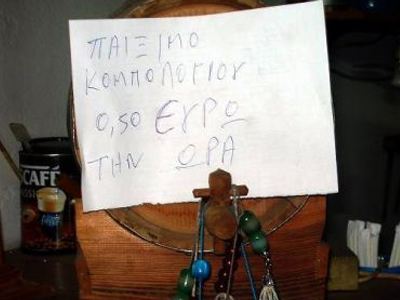 ΠΑΙΞΙΜΟ
ΚΟΜΠΟΛΟΓΙΟΥ
0,50 ΕΥΡΟ
ΤΗΝ ΟΡΑ
CAFÉ